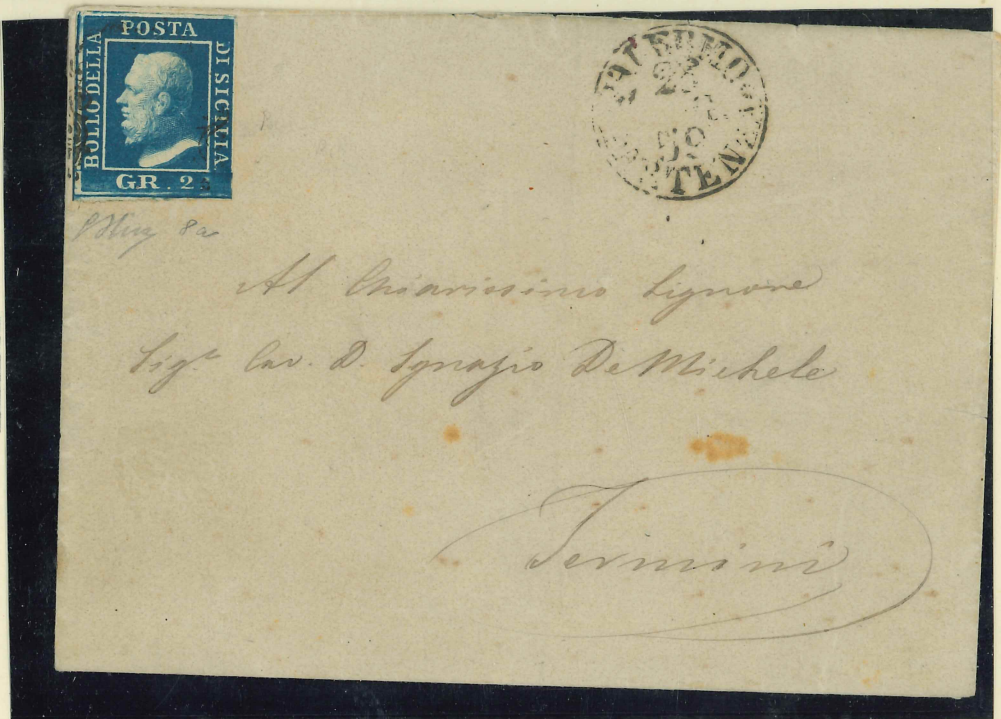 POSTA
BOLLO DELLA
DI SICILIA
GR. 2
PALERMO
59
PARTENZA
8a
Al Chiarissimo Signore
Sig.r Cav. D. Ignazio De Michele
Termini